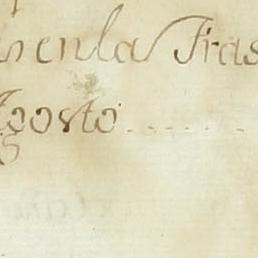 en la Tras
Agosto